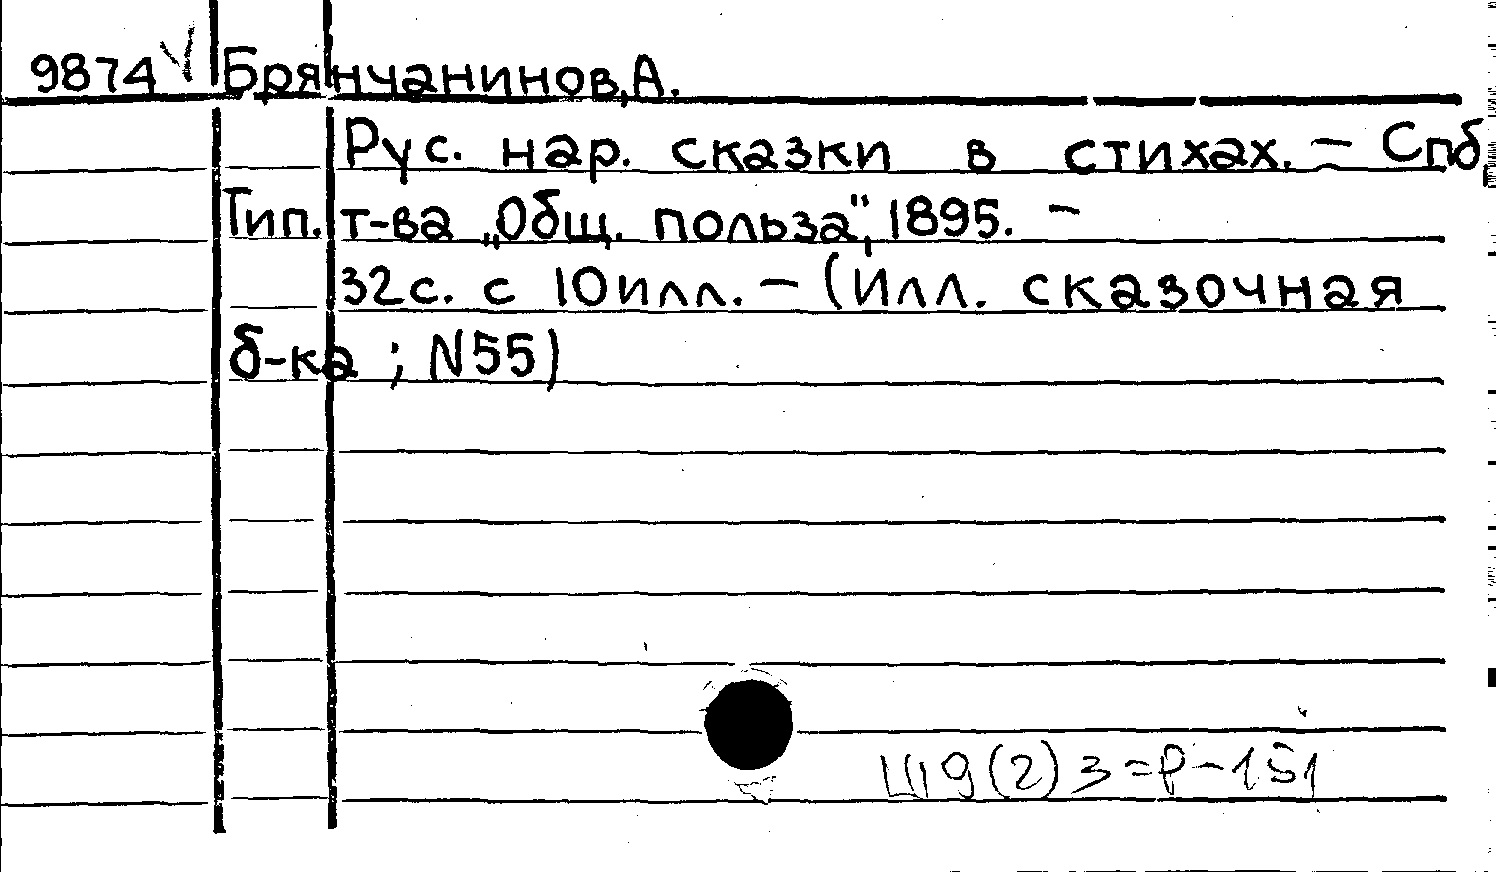 9874 Брянчанинов, А.
Рус. нар. сказки в стихах. – Спб,
Тип. т-ва „Общ. польза", 1895. –
32с. с 10 илл. – (Илл. сказочная
б-ка ; N55)
Ш9(2)3=Р-151